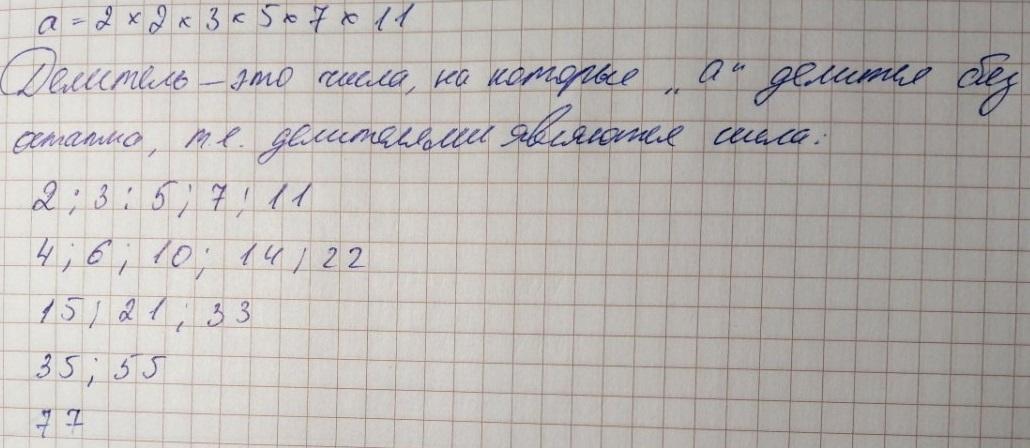 a = 2 × 2 × 3 × 5 × 7 × 11
Делитель – это числа, на которые „a“ делится без
остатка, т.е. делителями являются числа:
2 ; 3 ; 5 ; 7 ; 11
4 ; 6 ; 10 ; 14 ; 22
15 ; 21 ; 33
35 ; 55
77